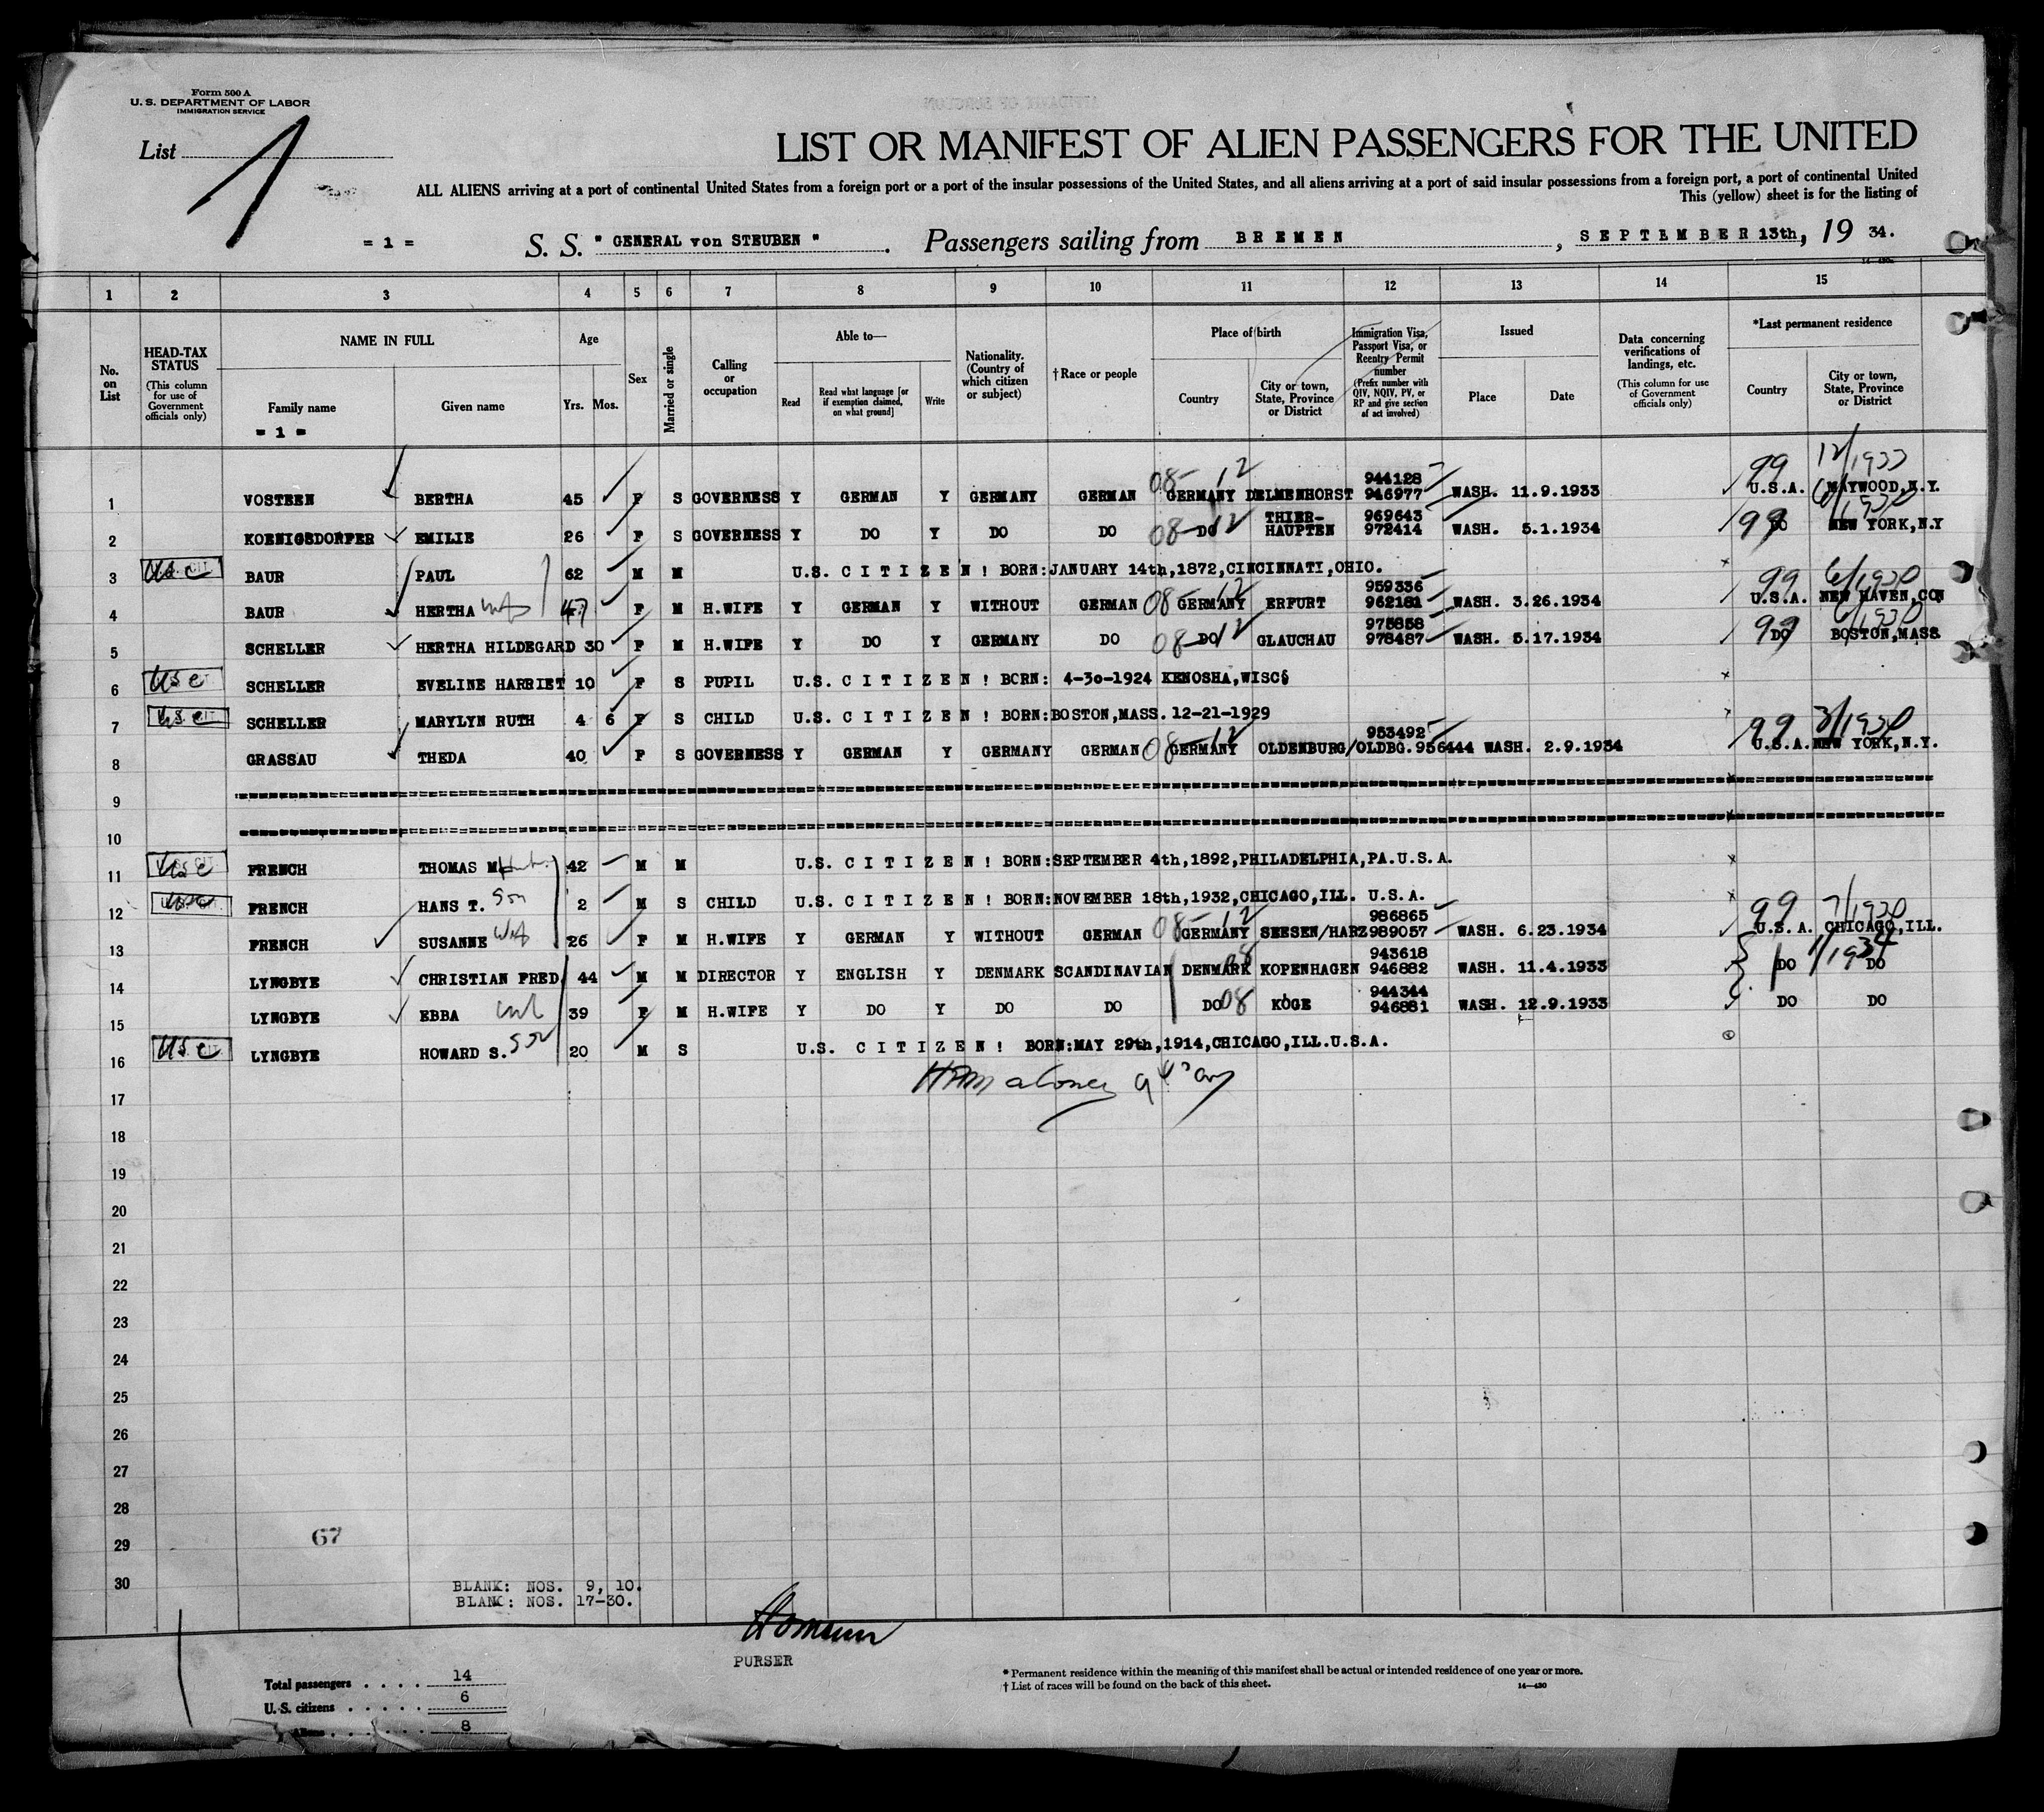 Form 500 A
U. S. DEPARTMENT OF LABOR
IMMIGRATION SERVICE
List 1
LIST OR MANIFEST OF ALIEN PASSENGERS FOR THE UNITED
ALL ALIENS arriving at a port of continental United States from a foreign port or a port of the insular possessions of the United States, and all aliens arriving at a port of said insular possessions from a foreign port, a port of continental United
This (yellow) sheet is for the listing of
= 1 = S. S. " GENERAL von STEUBEN ". Passengers sailing from BREMEN, SEPTEMBER 13th, 19 34.
1 2 3 4 5 6 7 8 9 10 11 12 13 14 15
No. on List
HEAD-TAX STATUS (This column for use of Government officials only)
NAME IN FULL
Family name
= 1 =
Given name
Age
Yrs. Mos.
Sex
Married or single
Calling or occupation
Able to—
Read
Read what language [or if exemption claimed, on what ground]
Write
Nationality. (Country of which citizen or subject)
†Race or people
Place of birth
Country
City or town, State, Province or District
Immigration Visa, Passport Visa, or Reentry Permit number (Prefix number with QIV, NQIV, PV, or RP and give section of act involved)
Issued
Place
Date
Data concerning verifications of landings, etc. (This column for use of Government officials only)
*Last permanent residence
Country
City or town, State, Province or District
1 VOSTEEN BERTHA 45 F S GOVERNESS Y GERMAN Y GERMANY GERMAN 08- 12 GERMANY DELMENHORST 944128 946977 WASH. 11.9.1933 99 U.S.A. 12/1933 MAYWOOD,N.Y.
2 KOENIGSDORFER EMILIE 26 F S GOVERNESS Y DO Y DO DO 08- 12 DO THIER-HAUPTEN 969643 972414 WASH. 5.1.1934 99 DO 6/1930 NEW YORK,N.Y
3 USC BAUR PAUL 62 M M U.S. C I T I Z E N ! BORN:JANUARY 14th,1872,CINCINNATI,OHIO.
4 BAUR HERTHA wf 47 F M H.WIFE Y GERMAN Y WITHOUT GERMAN 08- 12 GERMANY ERFURT 959336 962181 WASH. 3.26.1934 99 U.S.A. 6/1930 NEW HAVEN,CON
5 SCHELLER HERTHA HILDEGARD 30 F M H.WIFE Y DO Y GERMANY DO 08- 12 DO GLAUCHAU 975858 978487 WASH. 5.17.1934 99 DO 6/1930 BOSTON,MASS
6 USC SCHELLER EVELINE HARRIET 10 F S PUPIL U.S. C I T I Z E N ! BORN: 4-30-1924 KENOSHA,WISC
7 USC SCHELLER MARYLYN RUTH 4 6 F S CHILD U.S. C I T I Z E N ! BORN:BOSTON,MASS. 12-21-1929
8 GRASSAU THEDA 40 F S GOVERNESS Y GERMAN Y GERMANY GERMAN 08- 12 GERMANY OLDENBURG/OLDBG. 953492 956444 WASH. 2.9.1934 99 U.S.A. 3/1930 NEW YORK,N.Y.
9
10
11 USC FRENCH THOMAS M. 42 M M U.S. C I T I Z E N ! BORN:SEPTEMBER 4th,1892,PHILADELPHIA,PA.U.S.A.
12 USC FRENCH HANS T. son 2 M S CHILD U.S. C I T I Z E N ! BORN:NOVEMBER 18th,1932,CHICAGO,ILL. U.S.A.
13 FRENCH SUSANNE wf 26 F M H.WIFE Y GERMAN Y WITHOUT GERMAN 08- 12 GERMANY SEESEN/HARZ 986865 989057 WASH. 6.23.1934 99 U.S.A. 7/1930 CHICAGO,ILL.
14 LYNGBYE CHRISTIAN FRED. 44 M M DIRECTOR Y ENGLISH Y DENMARK SCANDINAVIAN 08 DENMARK KOPENHAGEN 943618 946882 WASH. 11.4.1933 DO 1/1934 DO
15 LYNGBYE EBBA 39 F M H.WIFE Y DO Y DO DO DO 08 KOGE 944344 946881 WASH. 12.9.1933 DO DO
16 USC LYNGBYE HOWARD S. son 20 M S U.S. C I T I Z E N ! BORN:MAY 29th,1914,CHICAGO,ILL.U.S.A.
17
18
19
20
21
22
23
24
25
26
27
28
29
30
67
BLANK: NOS. 9, 10.
BLANK: NOS. 17-30.
PURSER
Total passengers 14
U.S. citizens 6
Aliens 8
* Permanent residence within the meaning of this manifest shall be actual or intended residence of one year or more.
† List of races will be found on the back of this sheet.
14—430